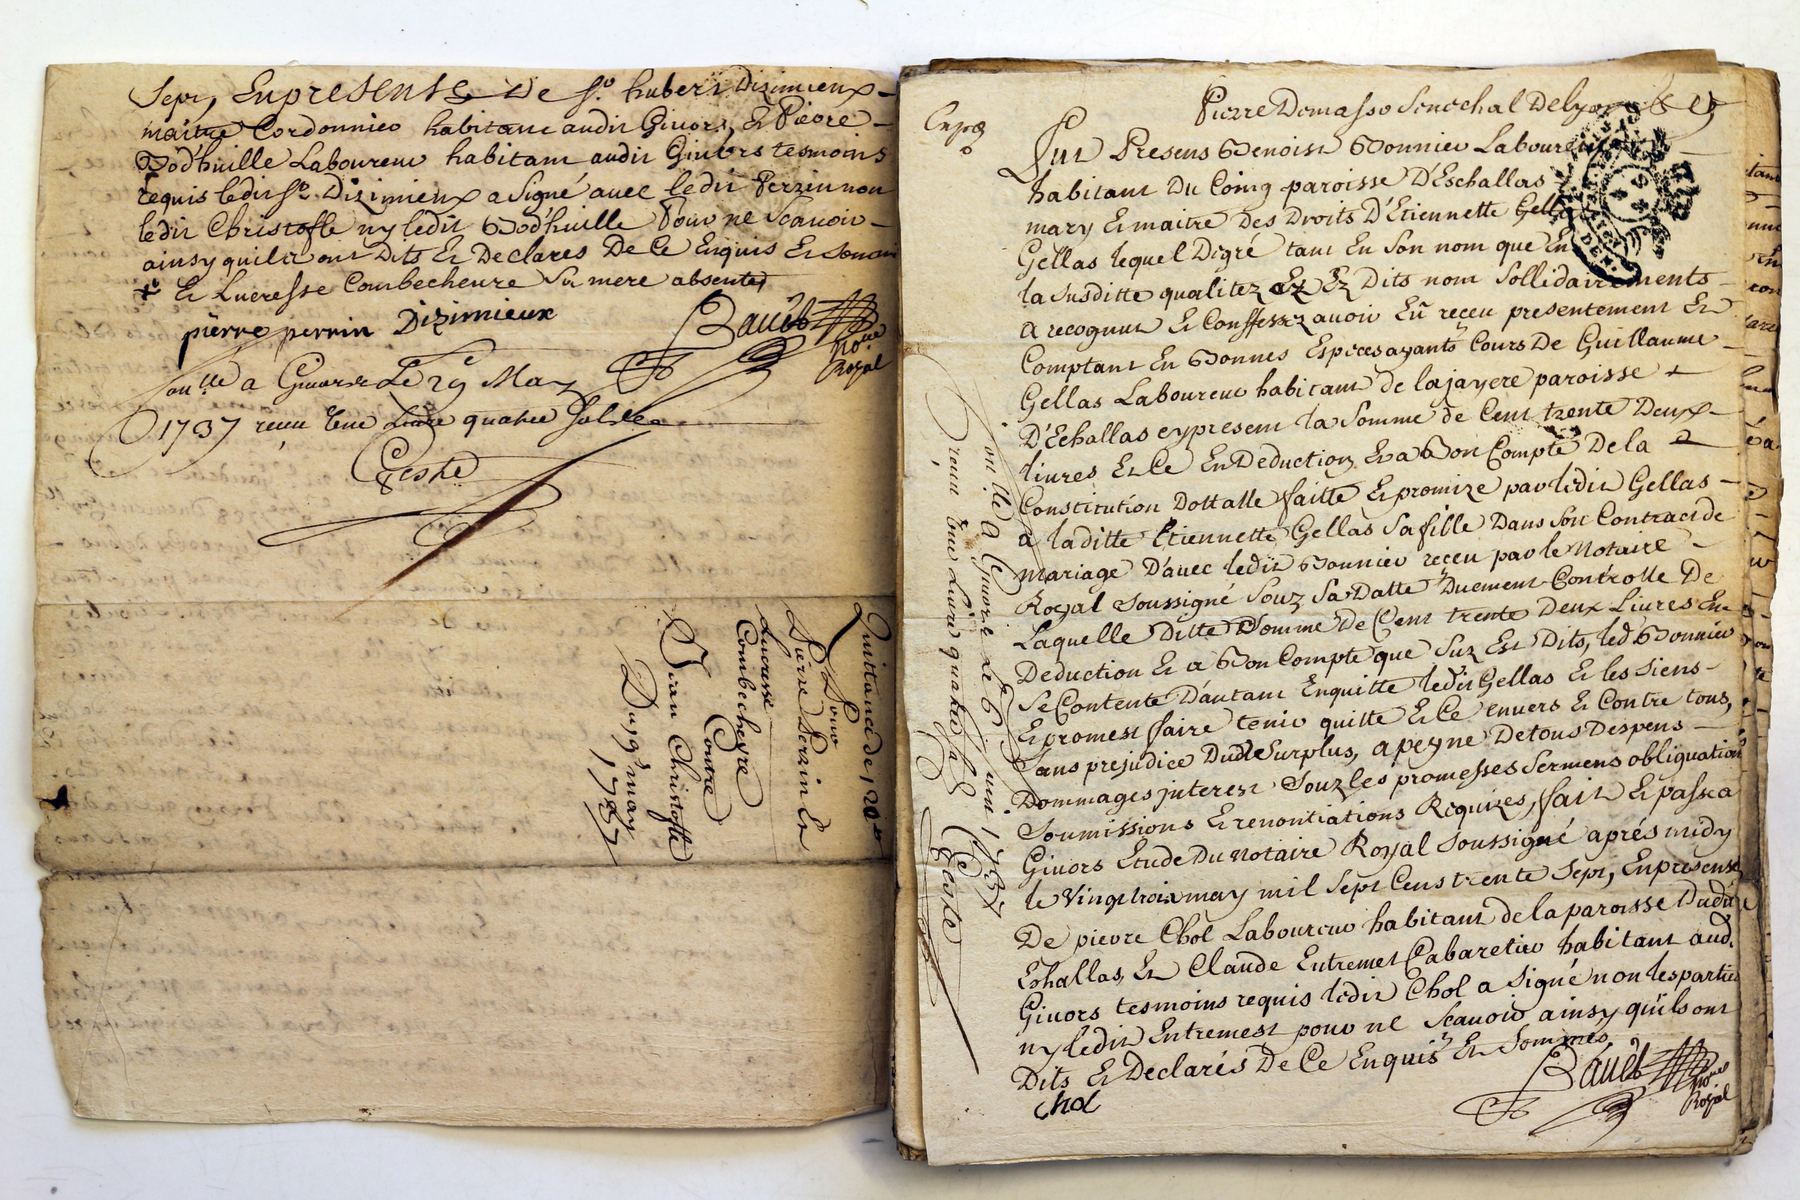 Sept, En presente De Sr. hubert Dizimieux
maitre Cordonnier habitant audit Givors, Et Pierre
Bod'huille Laboureur habitant audit Givors tesmoins
requis ledit Sr. Dizimieux a signé avec ledit Perrin non
ledit Christofle ny ledit Bod'huille Pour ne Scavoir
ainsy quils ont Dits Et Declares De Ce Enquis Et Sommés
Et Lucresse Combecheure Sa mere absente
pierre perrin Dizimieux
Bauéb
Nore
Royal
a Givors Le 29 May
1737 receu Une Livre quatre Sols
Geste
Quittance de 120
Pour
Pierre Perain Et
Lucresse
Combecheure
Contre
Jean Christofle
Du 19e may
1737
Pierre Demasso Senechal De Lyon
Fut Present Benoist Bonnier Laboureur
habitant Du Coing paroisse D'Eschallas
mary Et maitre Des Droits D'Etiennette Gellas
Gellas lequel Digré tant En Son nom que En
la Susditte qualitez Ez Dits nom Sollidairements
a recognut Et Confessez avoir Eü receu presentement Et
Comptant En Bonnes Especes ayants Cours De Guillaume
Gellas Laboureur habitant de la jayere paroisse
D'Echallas cy present la Somme de Cent trente Deux
livres Et Ce En Deduction Et a Bon Compte De la
Constitution Dottalle faitte Et promize par ledit Gellas
a laditte Etiennette Gellas Sa fille Dans Son Contract de
mariage D'avec ledit Bonnier receu par le Notaire
Royal Soussigné Souz Sa Datte Duement Controlle De
Laquelle Ditte Somme De Cent trente Deux Livres En
Deduction Et a Bon Compte que Suz Est Dits, led Bonnier
Se Contente D'autant Enquitte ledit Gellas Et les Siens
Et promest faire tenir quitte Et Ce envers Et Contre tous,
Sans prejudice Dud Surplus, a peyne De tous Despens
Dommages jnterest Souz les promesses Sermens obliguations
Soumissions Et renontiations Requizes, fait Et passé a
Givors Etude Du Notaire Royal Soussigné aprés midy
le Vingt trois may mil Sept Cens trente Sept, En presense
De pierre Chol Laboureur habitant de la paroisse Dudit
Eshallas, Et Claude Entremet Cabaretier habitant aud.
Givors tesmoins requis ledit Chol a Signé non les parties
ny ledit Entremest pour ne Scavoir ainsy quils ont
Dits Et Declarés De Ce Enquis Et Sommés
Chol
Bauéb
Nore
Royal
a Givors Le 6 juin 1737
receu Une Livre quatre Sols
Geste